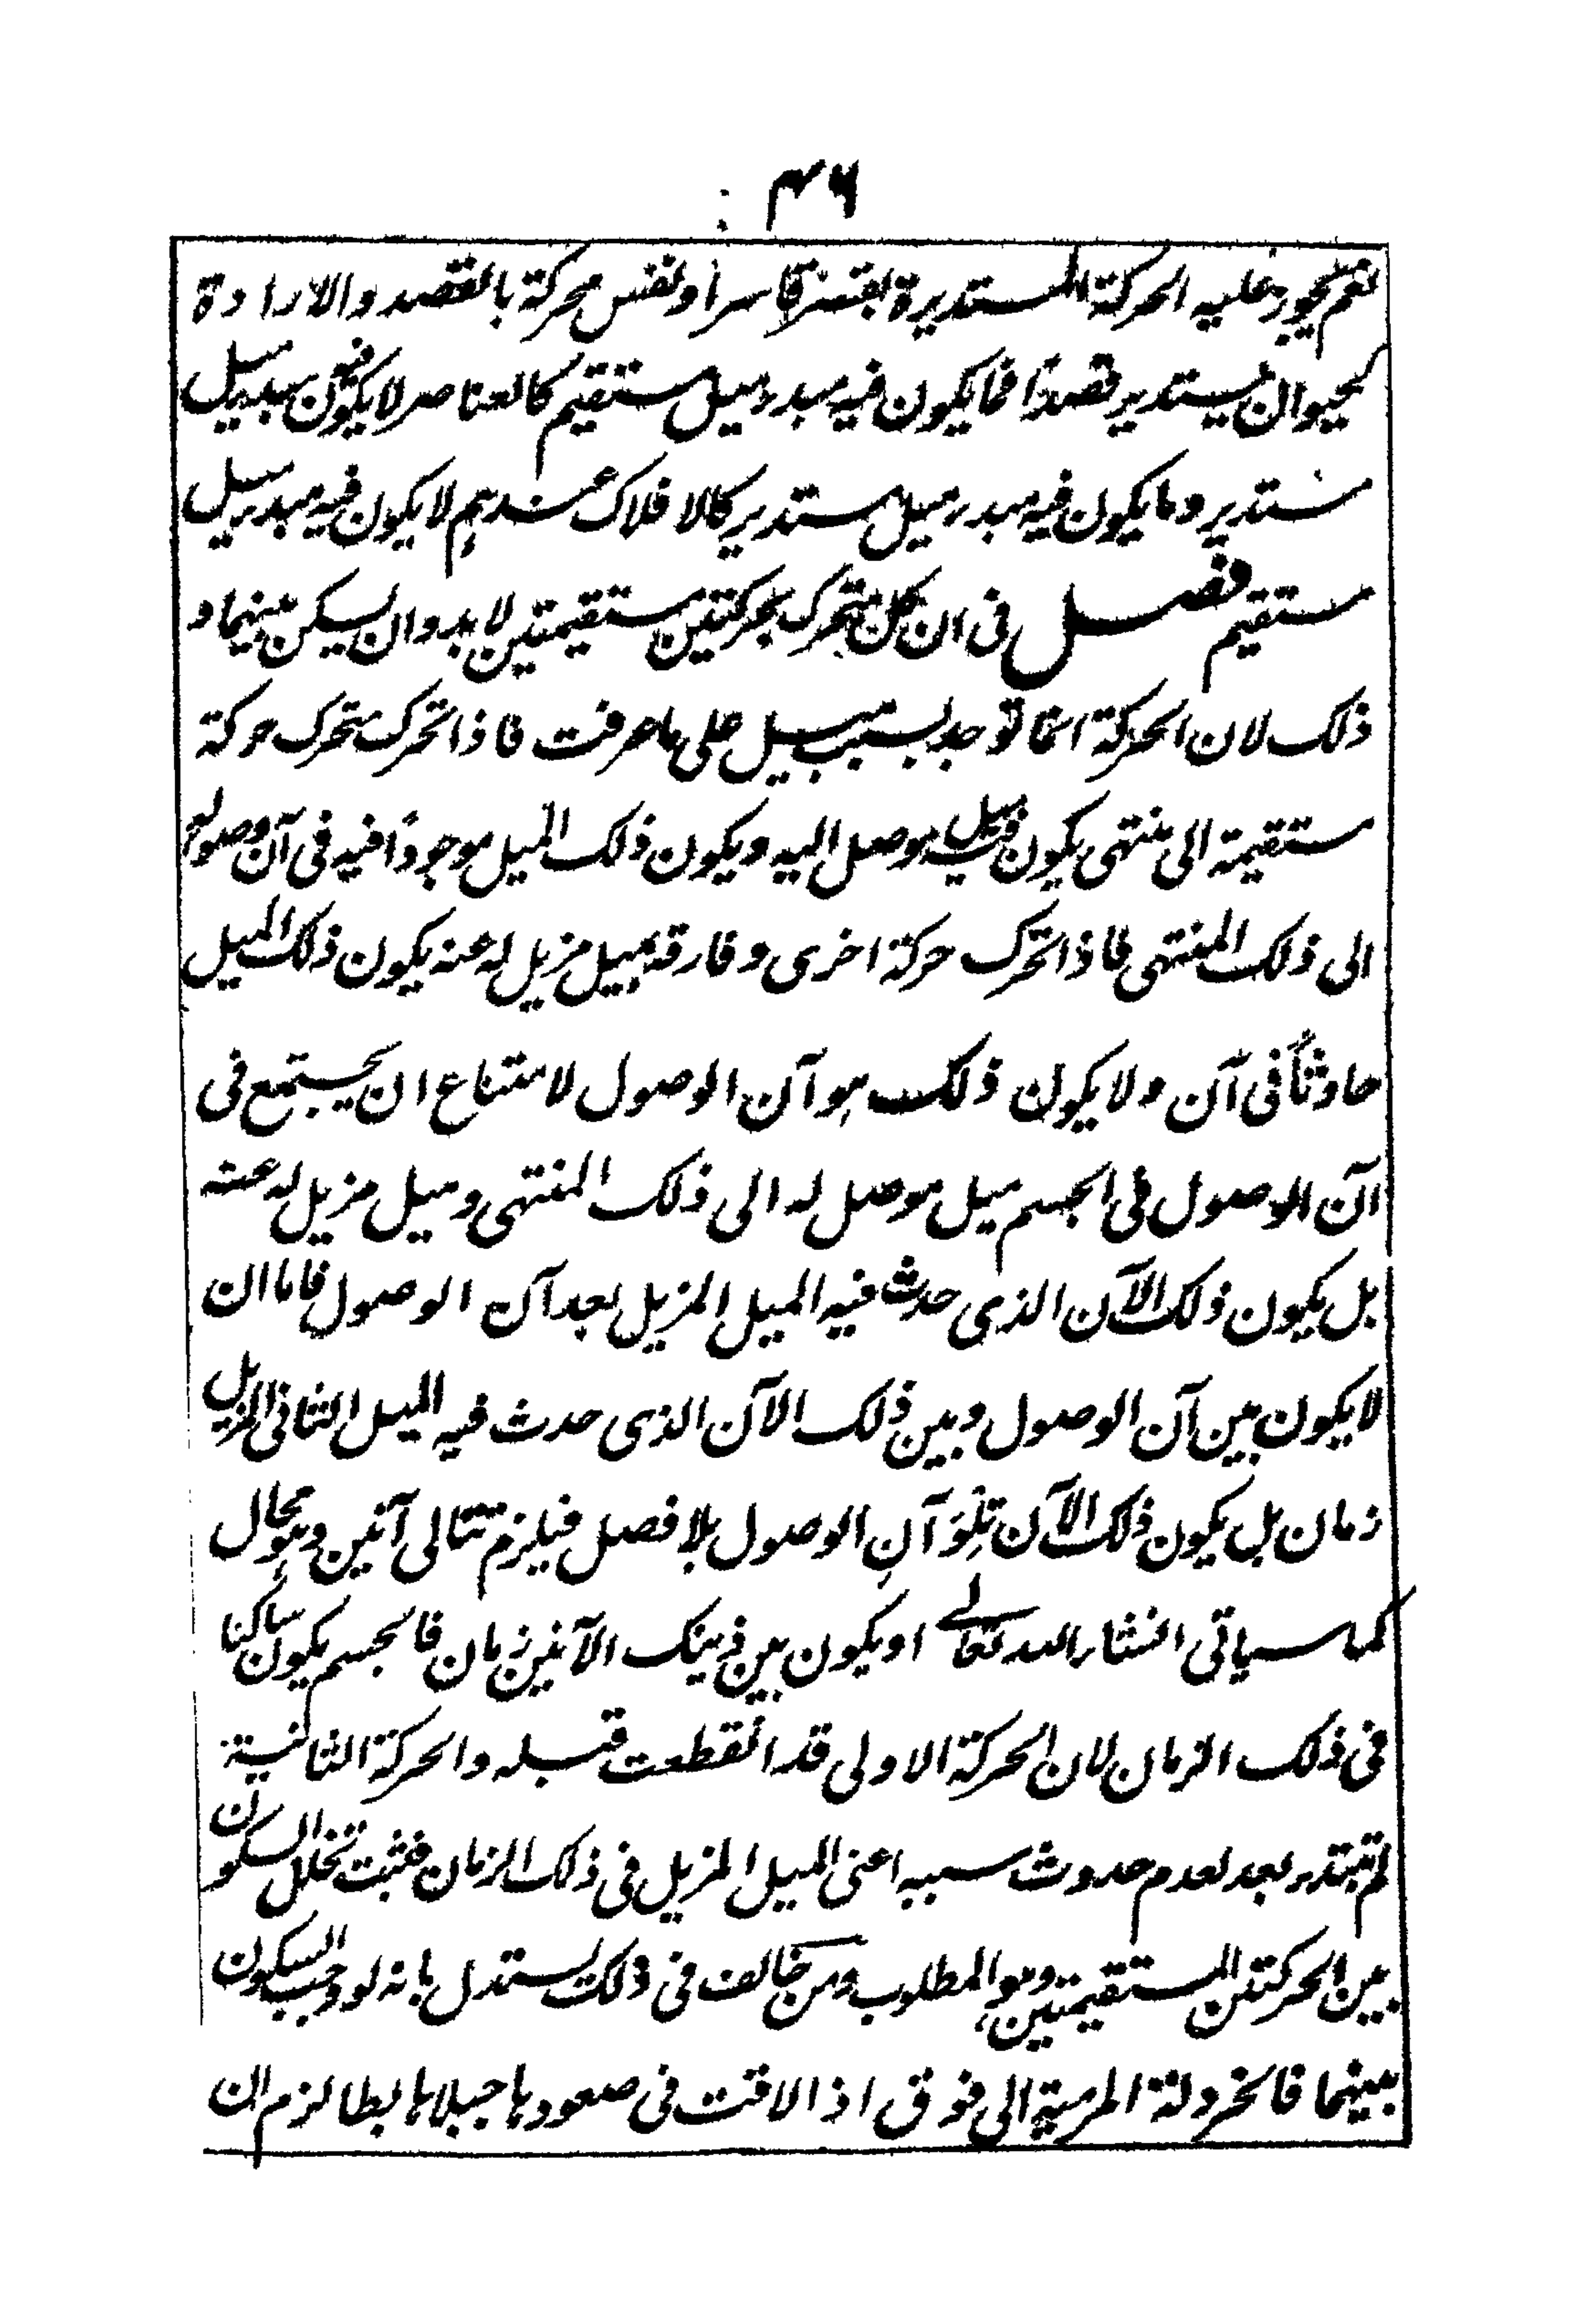 ۴۶
نعم یجوز علیه الحرکة المستدیرة بقسر قاسر او نفس محرکة بالقصد والارادة
کحیوان یستدیر قصدًا فما یکون فیه مبدء میل مستقیم کالعناصر لا یکون فیه مبدء میل
مستدیر وما یکون فیه مبدء میل مستدیر کالافلاک عندهم لا یکون فیه مبدء میل
مستقیم فصل فی ان کل متحرک بحرکتین مستقیمتین لا بد وان یسکن بینهما و
ذلک لان الحرکة انما توجد بسبب میل علی ما عرفت فاذا تحرک متحرک حرکة
مستقیمة الی منتهی یکون فیه میل موصل الیه ویکون ذلک المیل موجودًا فیه فی آن وصوله
الی ذلک المنتهی فاذا تحرک حرکة اخری وفارقه بمیل مزیل له عنه یکون ذلک المیل
حادثًا فی آن ولا یکون ذلک هو آن الوصول لامتناع ان یجتمع فی
آن الوصول فی الجسم میل موصل له الی ذلک المنتهی ومیل مزیل له عنه
بل یکون ذلک الآن الذی حدث فیه المیل المزیل بعد آن الوصول فاما ان
لا یکون بین آن الوصول وبین ذلک الآن الذی حدث فیه المیل الثانی المزیل
زمان بل یکون ذلک الآن تِلْوَ آنِ الوصول بلا فصل فیلزم تتالی آنین وهو محال
کما سیاتی انشاء الله تعالے او یکون بین ذینک الآنین زمان فالجسم یکون ساکنا
فی ذلک الزمان لان الحرکة الاولی قد انقطعت قبله والحرکة الثانیة
لم تبتدء بعد لعدم حدوث سببه اعنی المیل المزیل فی ذلک الزمان فثبت تخلل السکون
بین الحرکتین المستقیمتین وهو المطلوب ومن خالف فی ذلک یستدل بانه لو وجب السکون
بینهما فالخردلة المرمیة الی فوق اذا لاقت فی صعودها جبلا هابطا لزم ان